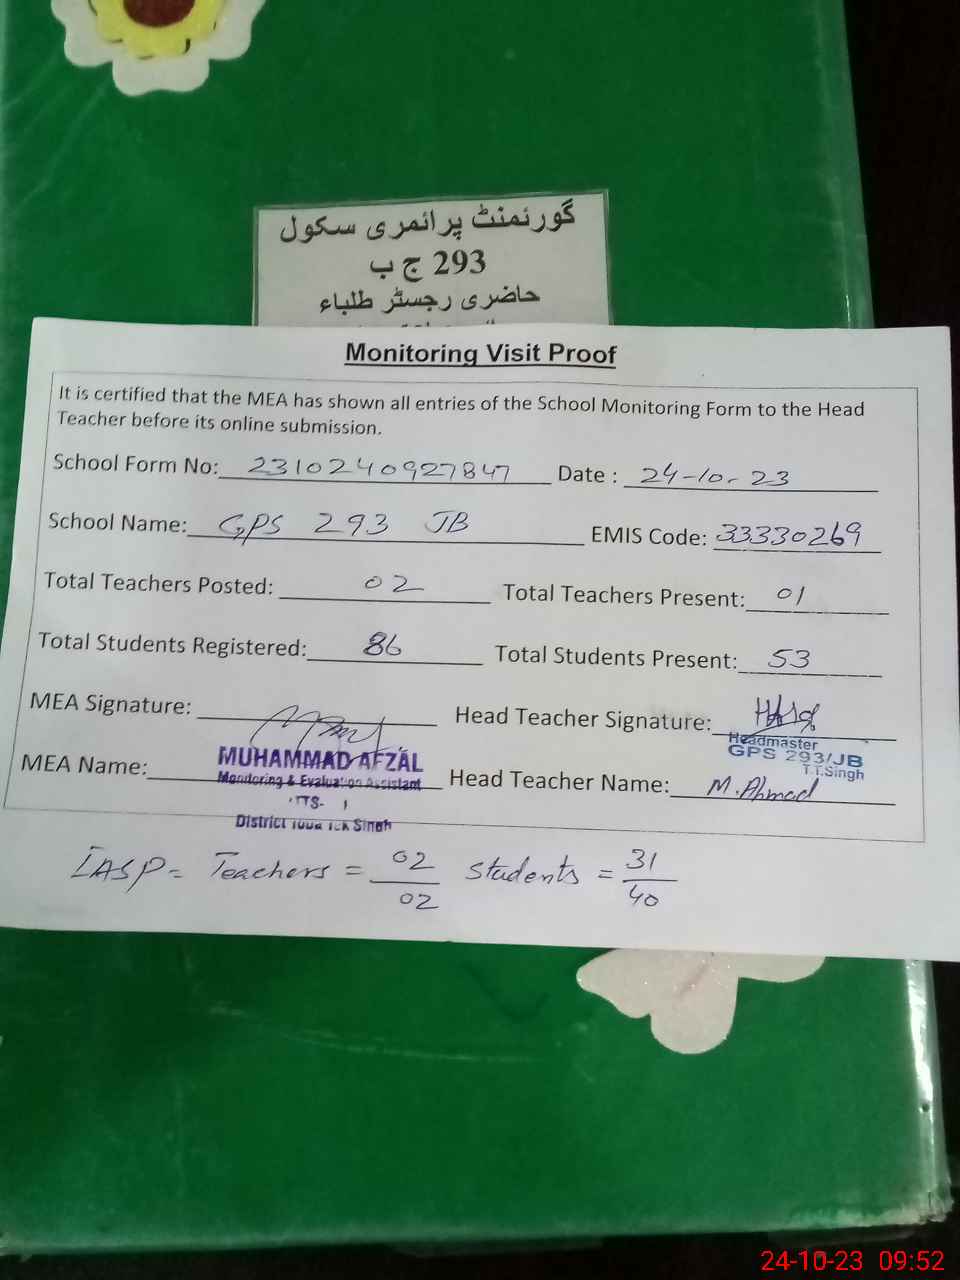 گورئمنٹ پرائمری سکول
293 ج ب
حاضری رجسٹر طلباء
Monitoring Visit Proof
It is certified that the MEA has shown all entries of the School Monitoring Form to the Head
Teacher before its online submission.
School Form No: 2310240927847 Date : 24-10-23
School Name: GPS 293 JB EMIS Code: 33330269
Total Teachers Posted: 02 Total Teachers Present: 01
Total Students Registered: 86 Total Students Present: 53
MEA Signature: Head Teacher Signature:
Headmaster
GPS 293/JB
T.T.Singh
MEA Name: MUHAMMAD AFZAL Head Teacher Name: M. Ahmad
Monitoring & Evaluation Assistant
District Toba Tek Singh
IASP = Teachers = 02/02 Students = 31/40
24-10-23 09:52